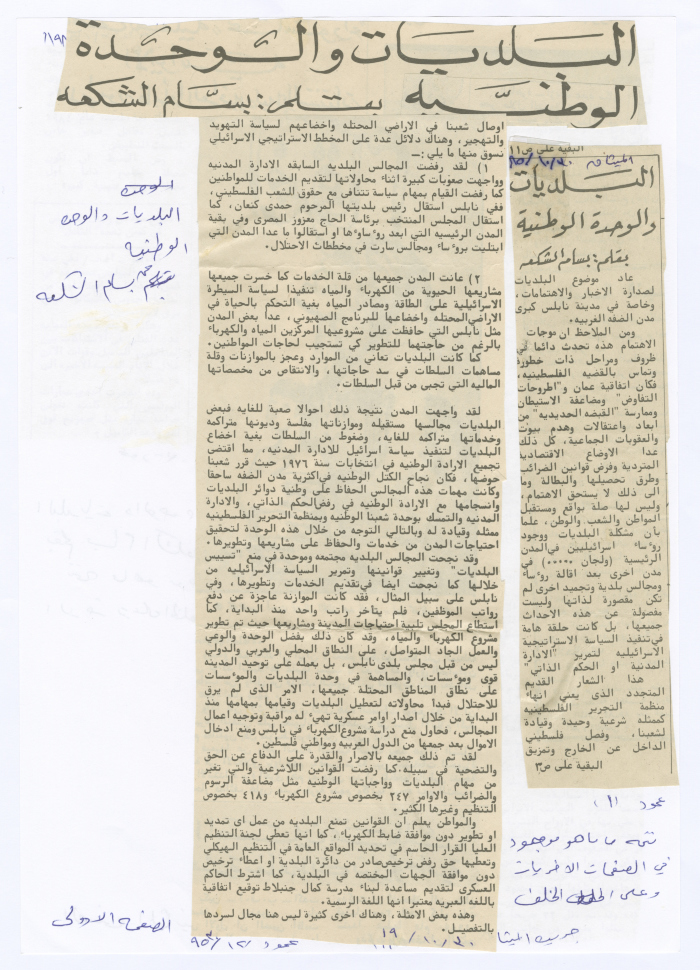 البلديات والوحدة
الوطنية بقلم: بسام الشكعه
البقية على ص١١
الميثاق
البلديات
والوحدة الوطنية
بقلم: بسام الشكعه
عاد موضوع البلديات
لصدارة الاخبار والاهتمامات،
وخاصة في مدينة نابلس كبرى
مدن الضفه الغربيه.
ومن الملاحظ ان موجات
الاهتمام هذه تحدث دائما في
ظروف ومراحل ذات خطورة
وتماس بالقضيه الفلسطينيه،
فكان اتفاقية عمان و"اطروحات
التفاوض" ومضاعفة الاستيطان
وممارسة "القبضه الحديديه" من
ابعاد واعتقالات وهدم بيوت
والعقوبات الجماعية، كل ذلك
عدا الاوضاع الاقتصادية
المتردية وفرض قوانين الضرائب
وطرق تحصيلها والبطالة وما
الى ذلك لا يستحق الاهتمام،
وليس لها صلة بواقع ومستقبل
المواطن والشعب والوطن، علما
بان مشكلة البلديات ووجود
روءساء اسرائيليين في المدن
الرئيسية (ولجان .....) في
مدن اخرى بعد اقالة روءساء
ومجالس بلدية وتجميد اخرى لم
تكن مقصورة لذاتها وليست
مفصولة عن هذه الاحداث
جميعها، بل كانت حلقة هامة
في تنفيذ السياسة الاستراتيجية
الاسرائيليه لتمرير "الادارة
المدنية او الحكم الذاتي"
هذا الشعار القديم
المتجدد الذى يعني انهاء
منظمة التحرير الفلسطينيه
كممثلة شرعية وحيدة وقيادة
لشعبنا، وفصل فلسطيني
الداخل عن الخارج وتمزيق
البقية على ص٣
اوصال شعبنا في الاراضي المحتله واخضاعهم لسياسة التهويد
والتهجير، وهناك دلائل عدة على المخطط الاستراتيجي الاسرائيلي
نسوق منها ما يلي :ــ
١) لقد رفضت المجالس البلديه السابقه الادارة المدنيه
وواجهت صعوبات كبيرة اثناء محاولاتها لتقديم الخدمات للمواطنين
كما رفضت القيام بمهام سياسة تتنافى مع حقوق الشعب الفلسطيني،
ففي نابلس استقال رئيس بلديتها المرحوم حمدى كنعان، كما
استقال المجلس المنتخب برئاسة الحاج معزوز المصرى وفي بقية
المدن الرئيسيه التي ابعد روءساوءها او استقالوا ما عدا المدن التي
ابتليت بروءساء ومجالس سارت في مخططات الاحتلال.
٢) عانت المدن جميعها من قلة الخدمات كما خسرت جميعها
مشاريعها الحيوية من الكهرباء والمياه تنفيذا لسياسة السيطرة
الاسرائيلية على الطاقة ومصادر المياه بغية التحكم بالحياة في
الاراضي المحتله واخضاعها للبرنامج الصهيوني، عدا بعض المدن
مثل نابلس التي حافظت على مشروعيها المركزين المياه والكهرباء
بالرغم من حاجتهما للتطوير كي تستجيب لحاجات المواطنين.
كما كانت البلديات تعاني من الموارد وعجز بالموازنات وقلة
مساهمات السلطات في سد حاجاتها، والانتقاص من مخصصاتها
الماليه التي تجبى من قبل السلطات.
لقد واجهت المدن نتيجة ذلك احوالا صعبة للغايه فبعض
البلديات مجالسها مستقيله وموازناتها مفلسة وديونها متراكمه
وخدماتها متراكمه للغايه، وضغوط من السلطات بغية اخضاع
البلديات لتنفيذ سياسة اسرائيل للادارة المدنيه، مما اقتضى
تجميع الارادة الوطنيه في انتخابات سنة ١٩٧٦ حيث قرر شعبنا
خوضها، فكان نجاح الكتل الوطنيه في اكثرية مدن الضفه ساحقا
وكانت مهمات هذه المجالس الحفاظ على وطنية دوائر البلديات
وانسجامها مع الارادة الوطنيه في رفض الحكم الذاتي، والادارة
المدنيه والتمسك بوحدة شعبنا الوطنية وبمنظمة التحرير الفلسطينية
ممثله وقيادة له وبالتالي التوجه من خلال هذه الوحدة لتحقيق
احتياجات المدن من خدمات والحفاظ على مشاريعها وتطويرها.
وقد نجحت المجالس البلديه مجتمعه وموحدة في منع "تسييس
البلديات" وتغيير قوانينها وتمرير السياسة الاسرائيليه من
خلالها كما نجحت ايضا في تقديم الخدمات وتطويرها، وفي
نابلس على سبيل المثال، فقد كانت الموازنة عاجزة عن دفع
رواتب الموظفين، فلم يتأخر راتب واحد منذ البداية، كما
استطاع المجلس تلبية احتياجات المدينة ومشاريعها حيث تم تطوير
مشروع الكهرباء والمياه، وقد كان ذلك بفضل الوحدة والوعي
والعمل الجاد المتواصل، على النطاق المحلي والعربي والدولي
ليس من قبل مجلس بلدى نابلس، بل بعمله على توحيد المدينه
قوى وموءسسات، والمساهمة في وحدة البلديات والموءسسات
على نطاق المناطق المحتلة جميعها، الامر الذى لم يرق
للاحتلال فبدأ محاولاته لتعطيل البلديات وقيامها بمهامها منذ
البداية من خلال اصدار اوامر عسكرية تهيء له مراقبة وتوجيه اعمال
المجالس، فحاول منع دراسة مشروع الكهرباء في نابلس ومنع ادخال
الاموال بعد جمعها من الدول العربيه ومواطني فلسطين.
لقد تم ذلك جميعه بالاصرار والقدرة على الدفاع عن الحق
والتضحية في سبيله. كما رفضت القوانين اللاشرعية والتي تغير
من مهام البلديات وواجباتها الوطنيه مثل مضاعفة الرسوم
والضرائب والاوامر ٢٤٧ بخصوص مشروع الكهرباء و٤١٨ بخصوص
التنظيم وغيرها الكثير.
والمواطن يعلم ان القوانين تمنع البلديه من عمل اى تمديد
او تطوير دون موافقة ضابط الكهرباء، كما انها تعطي لجنة التنظيم
العليا القرار الحاسم في تحديد المواقع العامة في التنظيم الهيكلي
وتعطيها حق رفض ترخيص صادر من دائرة البلدية او اعطاء ترخيص
دون موافقة الجهات المختصه في البلدية، كما اشترط الحاكم
العسكرى لتقديم مساعدة لبناء مدرسة كمال جنبلاط توقيع اتفاقية
باللغه العبريه معتبرا انها اللغة الرسمية.
وهذه بعض الامثلة، وهناك اخرى كثيرة ليس هنا مجال لسردها
بالتفصيل.
البلديات والوحده
الوطنيه
بسام الشكعه
عمود
تتمه ما ما هو موجود
في الصفحات الاخريات
وعلى الخلف
الصفحه الاولى
عمود